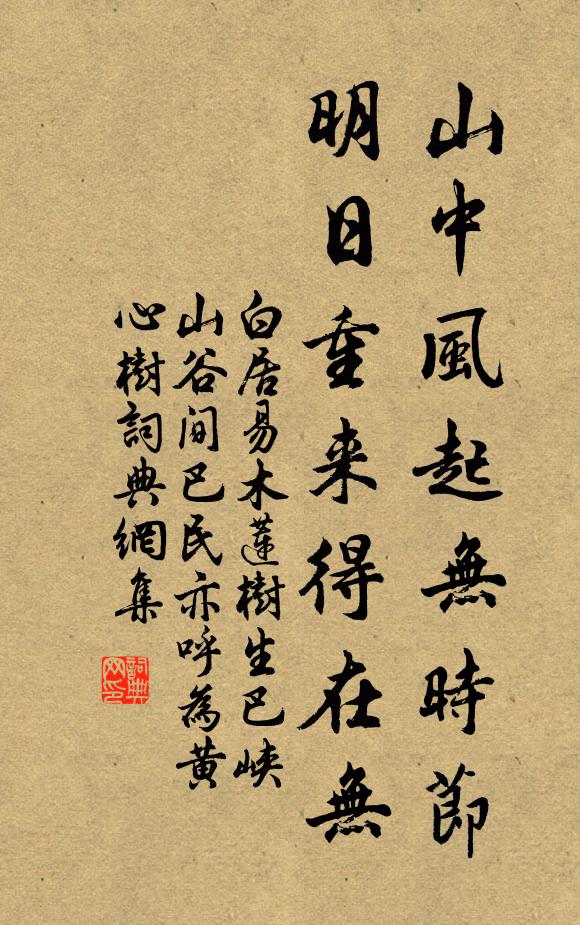 山中風起無時節
明日重来得在無
白居易木蓮樹生巴峡
山谷间巴民亦呼為黄
心樹詞典網集
詞典
网印